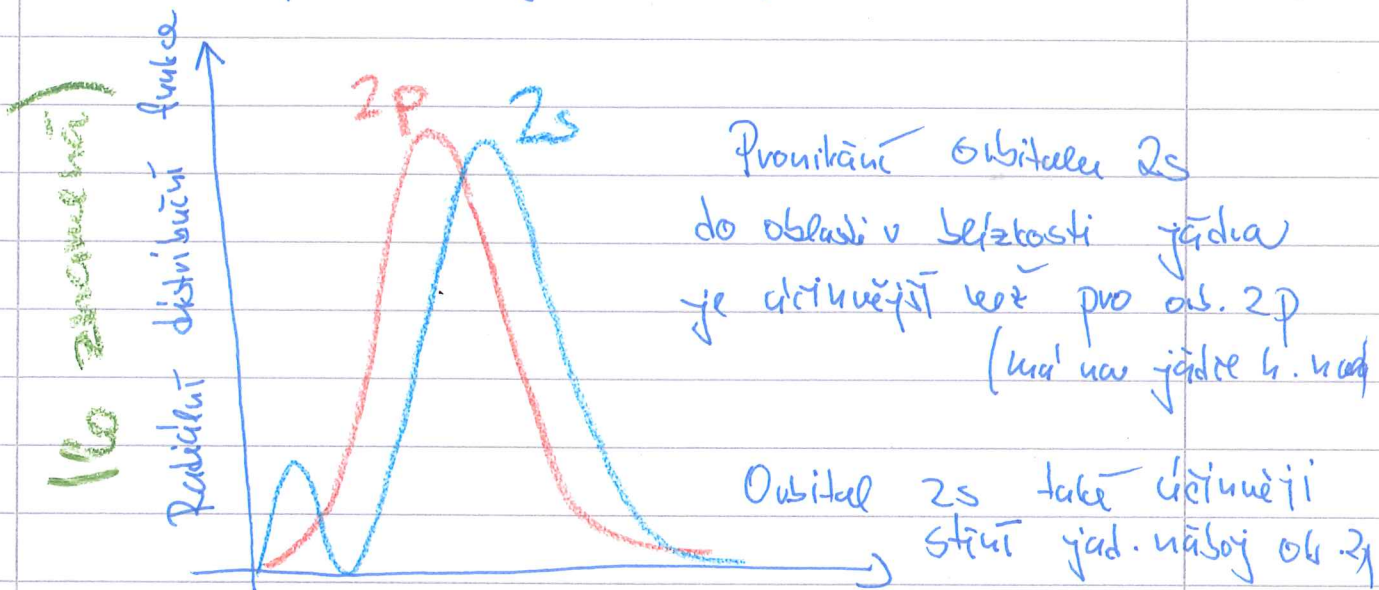 Radiální distribuční funkce
2p
2s
Pronikání orbitalu 2s
do oblasti v blízkosti jádra
je účinnější než pro orb. 2p
(má na jádře n.
Orbital 2s také účinněji
stíní jad. náboj ob. 2p